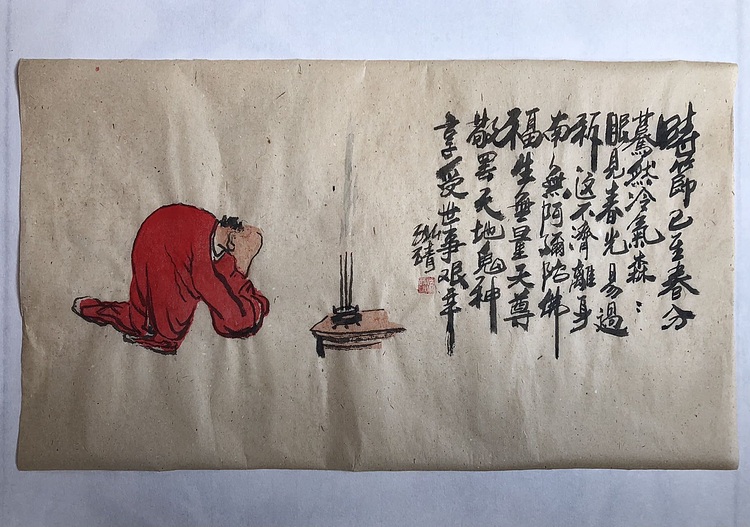 時節已至春分
驀然冷氣森:
眼見春光易過
祈這不濟離身
南無阿彌陀佛
福生無量天尊
敬罢天地鬼神
享受世事艰辛